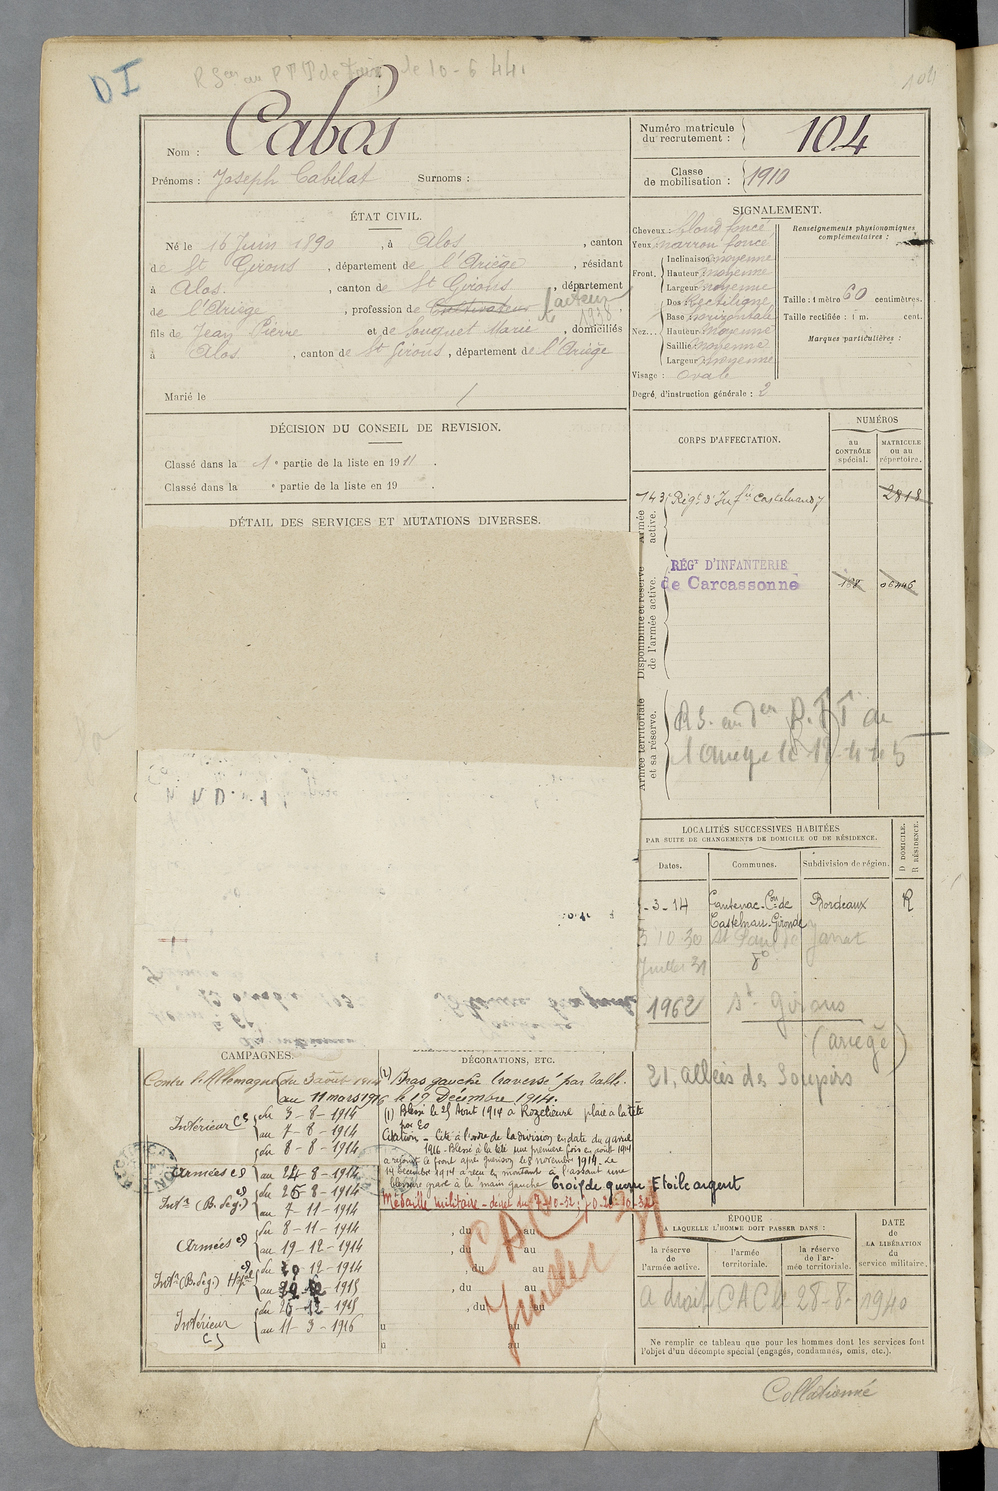 DI
de 10-6 44
104
Nom : Cabos
Prénoms : Joseph Cabilat Surnoms :
Numéro matricule du recrutement : 104
Classe de mobilisation : 1910
ÉTAT CIVIL.
Né le 16 Juin 1890, à Alos, canton
de St Girons, département de l'Ariège, résidant
à Alos, canton de St Girons, département
de l'Ariège, profession de Cultivateur facteur 1938
fils de Jean Pierre et de Souquet Marie, domiciliés
à Alos, canton de St Girons, département de l'Ariège
Marié le /
SIGNALEMENT.
Cheveux : blond foncé
Yeux marron foncé
Front. Inclinaison moyenne
Hauteur moyenne
Largeur moyenne
Nez... Dos Rectiligne
Base horizontale
Hauteur moyenne
Saillie moyenne
Largeur moyenne
Visage : ovale
Degré d'instruction générale : 2
Renseignements physionomiques complémentaires :
Taille : 1 mètre 60 centimètres.
Taille rectifiée : 1 m. cent.
Marques particulières :
DÉCISION DU CONSEIL DE REVISION.
Classé dans la 1e partie de la liste en 1911.
Classé dans la e partie de la liste en 19 .
DÉTAIL DES SERVICES ET MUTATIONS DIVERSES.
CORPS D'AFFECTATION.
NUMÉROS
au CONTRÔLE spécial.
MATRICULE ou au répertoire.
Armée active.
143e Régt d'Infie Castelnaudy 2818
Disponibilité et réserve de l'armée active.
RÉGT D'INFANTERIE
de Carcassonne
Armée territoriale et sa réserve.
N. N. D. n
LOCALITÉS SUCCESSIVES HABITÉES
PAR SUITE DE CHANGEMENTS DE DOMICILE OU DE RÉSIDENCE.
D DOMICILE. R RÉSIDENCE.
Dates. Communes. Subdivision de région.
-3-14 Cantenac-Con de Castelnau-Gironde Bordeaux R
10 30 St Paul de Jarrat
Juillet 31 do
1962 St Girons
(ariège)
21, allées des Soupirs
CAMPAGNES.
Contre l'Allemagne du 3 août 1914
au 11 mars 1916
Intérieur CS du 3-8-1914
au 7-8-1914
Armées CD du 8-8-1914
au 24-8-1914
Intr (B. Seg.) CD du 25-8-1914
au 7-11-1914
Armées CD du 8-11-1914
au 19-12-1914
du 12-1914
au 1915
Intérieur CS du 12-1915
au 11-3-1916
DÉCORATIONS, ETC.
(2) Bras gauche traversé par balle.
le 19 Décembre 1914.
(1) Blessé le 25 Aout 1914 à Rozelieure plaie a la tête
par Eo
Citation - Cité à l'ordre de la division en date du
1916 - Blessé à la tête une première fois en août 1914
a rejoint le front après guérison le 8 novembre 1914. Le
19 décembre 1914 a reçu en montant à l'assaut une
blessure grave à la main gauche Croix de guerre Etoile argent
Médaille militaire
, du au
, du au
, du au
, du au
, du au
au
au
CAC
Juillet 31
ÉPOQUE
À LAQUELLE L'HOMME DOIT PASSER DANS :
la réserve de l'armée active.
l'armée territoriale.
la réserve de l'armée territoriale.
DATE DE LA LIBÉRATION du service militaire.
a droit CAC le 28-8-1940
Ne remplir ce tableau que pour les hommes dont les services font
l'objet d'un décompte spécial (engagés, condamnés, omis, etc.).
Collationné